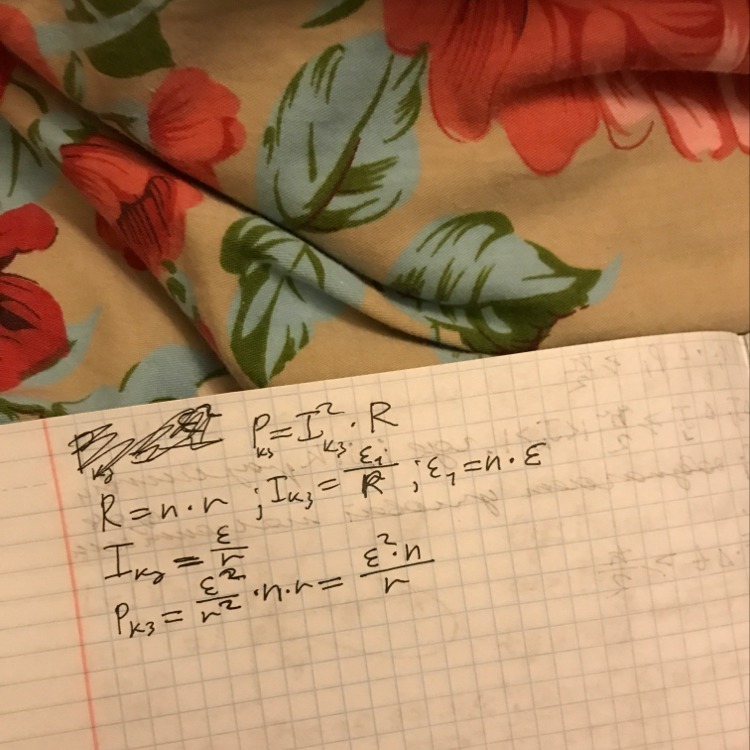 P_кз = I_кз² · R
R = n · r ; I_кз = ε₁/R ; ε₁ = n · ε
I_кз = ε/r
P_кз = ε²/r² · n · r = ε² · n/r